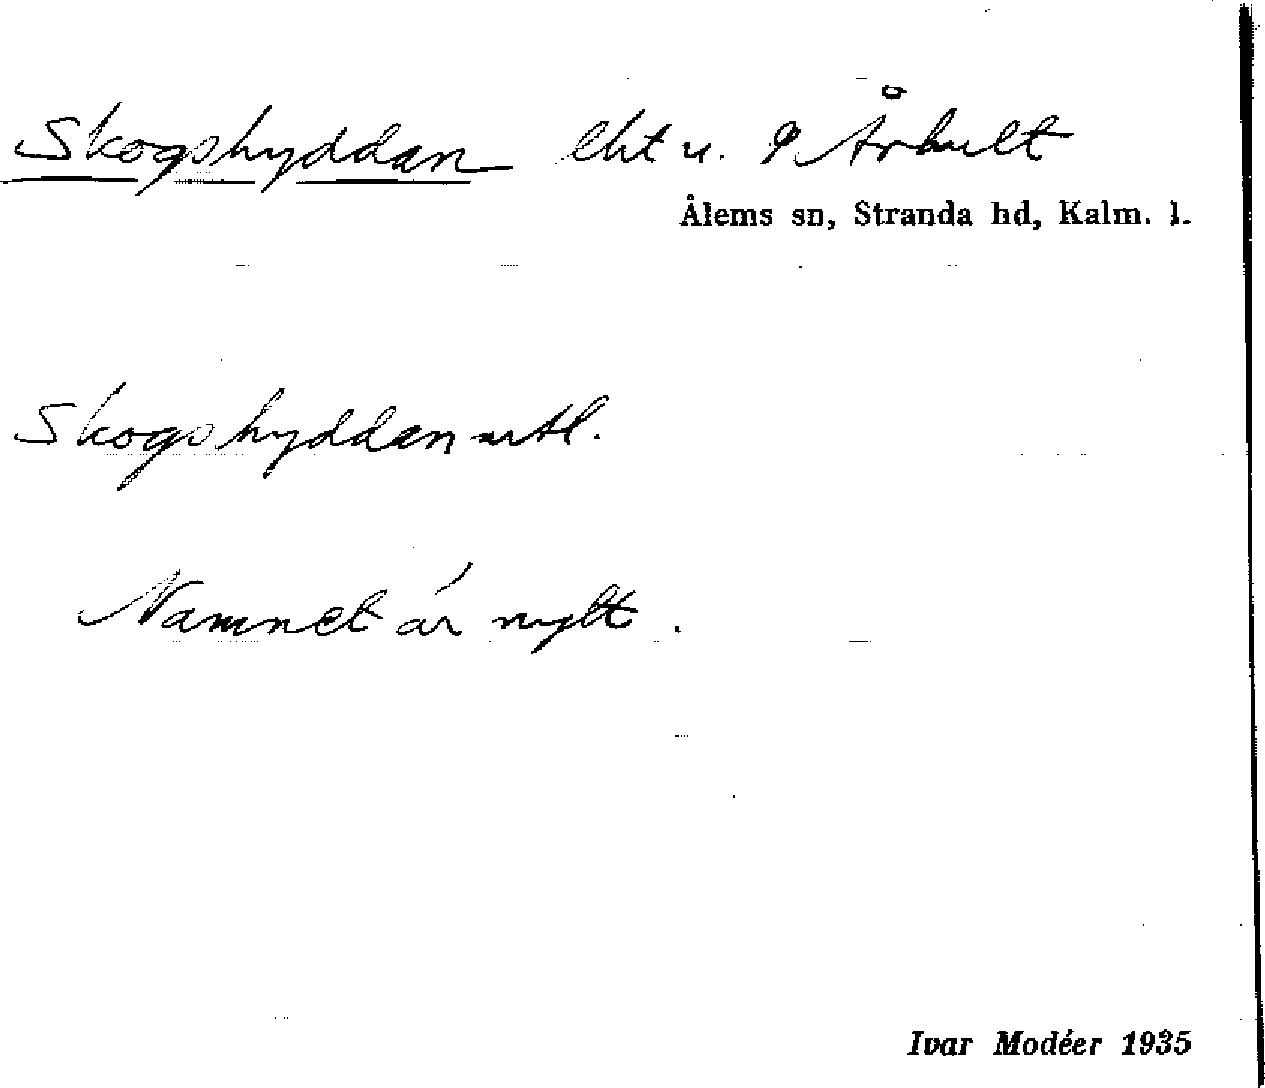 Skogshyddan lht u. Århult
Ålems sn, Stranda hd, Kalm. l.
Skogshyddan uttl.
Namnet är nytt.
Ivar Modéer 1935